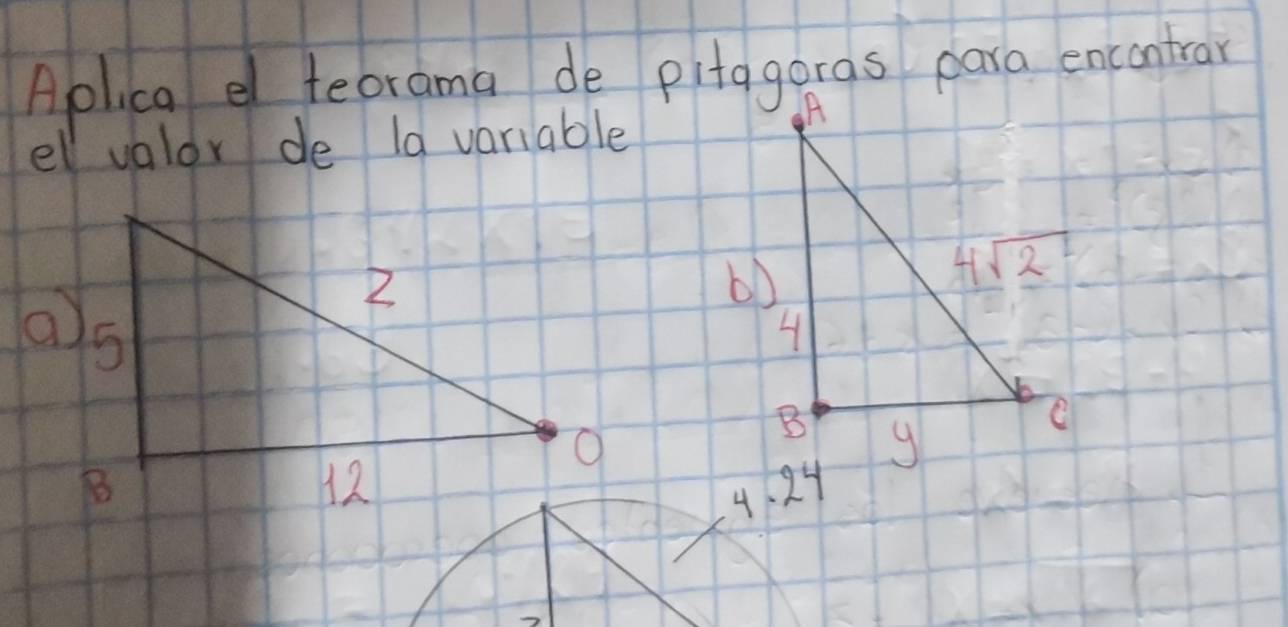 Aplica el teorama de pitagoras para encontrar
el valor de la variable
a)
5
z
B
12
O
b)
A
4
4√2
B
y
C
4.24